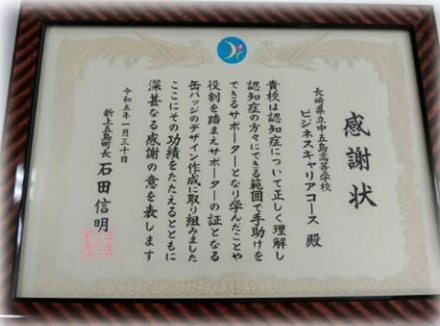 感謝状
長崎県立中五島高等学校
ビジネスキャリアコース 殿
貴校は認知症について正しく理解し
認知症の方々にできる範囲で手助けを
できるサポーターとなり学んだことや
役割を踏まえサポーターの証となる
缶バッジのデザイン作成に取り組みました
ここにその功績をたたえるとともに
深甚なる感謝の意を表します
令和五年一月三十日
新上五島町長 石田信明